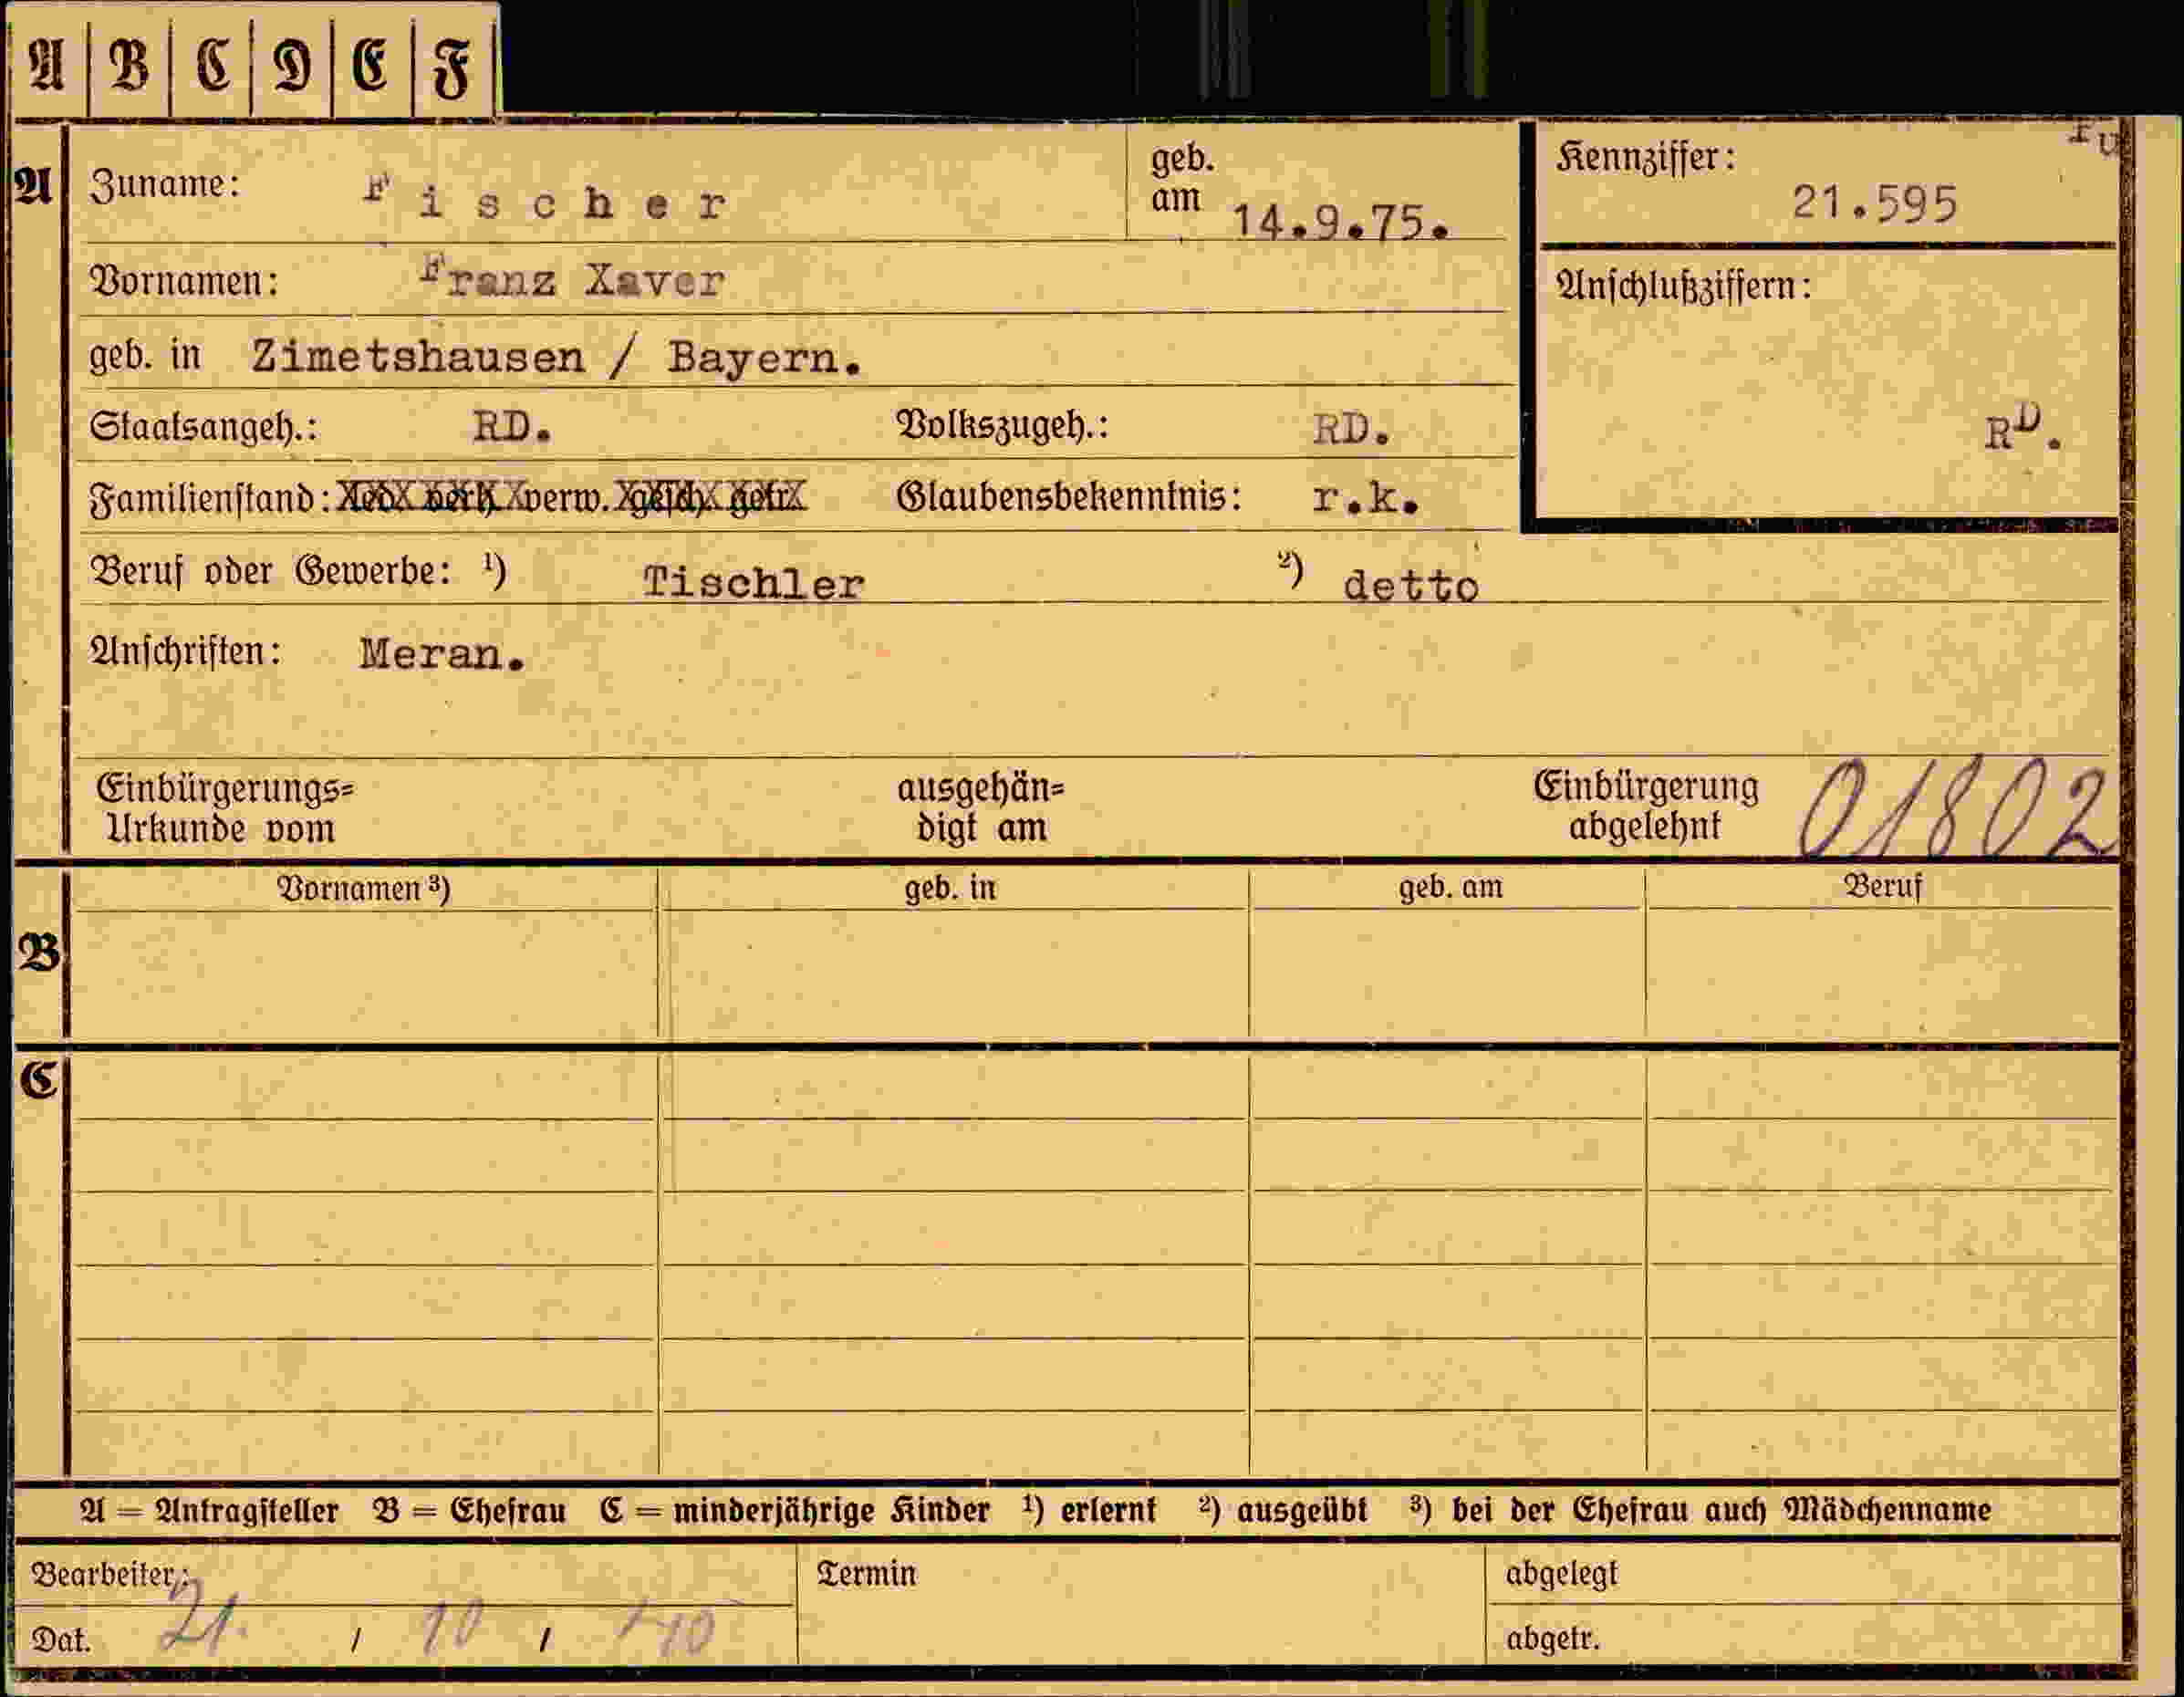 A B C D E F
A
Zuname: Fischer geb. am 14.9.75.
Kennziffer: 21.595
Vornamen: Franz Xaver
Anschlußziffern:
geb. in Zimetshausen / Bayern.
Staatsangeh.: RD. Volkszugeh.: RD.
RD.
Familienstand: led. verh. verw. gesch. getr. Glaubensbekenntnis: r.k.
Beruf oder Gewerbe: ¹) Tischler ²) detto
Anschriften: Meran.
Einbürgerungs= Urkunde vom
ausgehän= digt am
Einbürgerung abgelehnt 01802
Vornamen ³) geb. in geb. am Beruf
B
C
A = Antragsteller B = Ehefrau C = minderjährige Kinder ¹) erlernt ²) ausgeübt ³) bei der Ehefrau auch Mädchenname
Bearbeiter: Termin abgelegt
Dat. 21. / 10 / 40 abgetr.